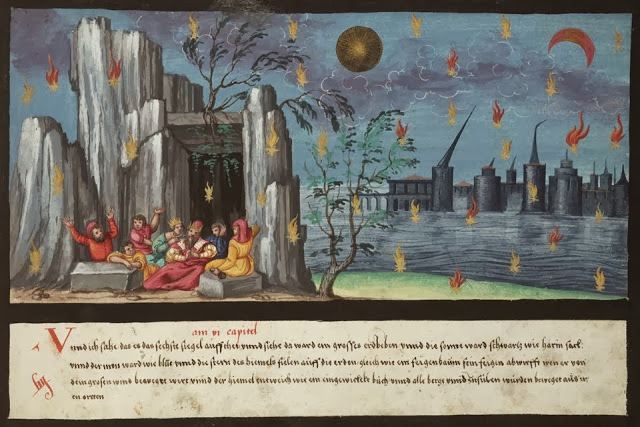 am vi capitel
Vnnd ich sahe das es das sechste sigel auffthet vnnd siehe da ward ein grosses erdbeben vnnd die sonne ward schwartz wie harin sack
vnnd der mon ward wie blůt vnnd die stern des himels fielen auff die erden gleich wie ein feigenbaum sein feigen abwirfft wen er von
dem grosen wind bewegt wirt vnnd der himel entweich wie ein eingewickelt bůch vnnd alle berge vnnd